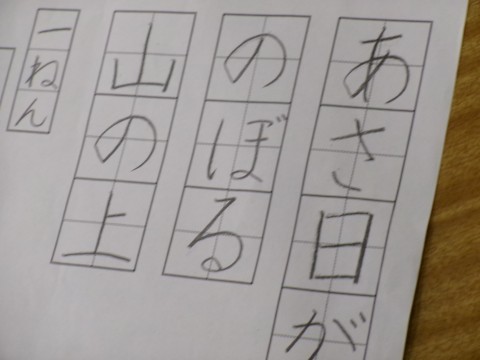 あさ日が
のぼる
山の上
一ねん